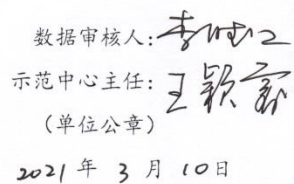 数据审核人:李
示范中心主任:王颖
(单位公章)
2021年3月10日